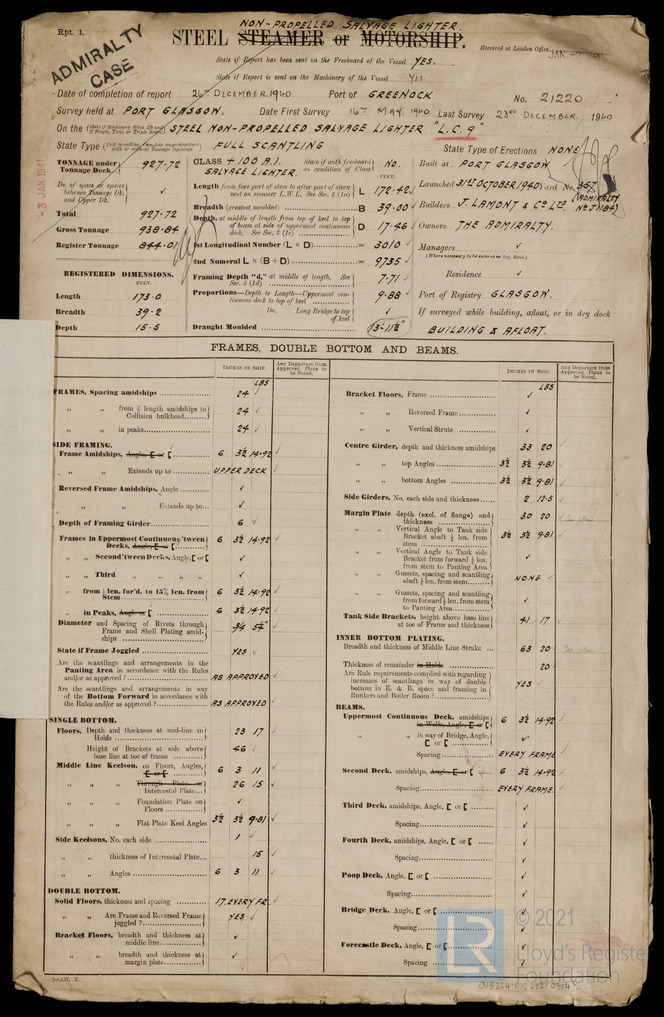 Rpt. 1.
NON-PROPELLED SALVAGE LIGHTER.
STEEL STEAMER or MOTORSHIP.
Received at London Office
ADMIRALTY CASE
State if Report has been sent on the Freeboard of the Vessel YES.
State if Report is sent on the Machinery of the Vessel Yes
Date of completion of report 26th DECEMBER, 1940 Port of GREENOCK No. 21220
Survey held at PORT GLASGOW. Date First Survey 16TH MAY, 1940 Last Survey 23RD DECEMBER 1940
On the STEEL NON-PROPELLED SALVAGE LIGHTER "L.C.9"
State Type FULL SCANTLING State Type of Erections NONE
3 JAN 1941
TONNAGE under Tonnage Deck 927.72
Do. of space or spaces between Tonnage Dk. and Upper Dk.
Total 927.72
Gross Tonnage 938.84
Register Tonnage 844.01
REGISTERED DIMENSIONS.
FEET.
Length 173.0
Breadth 39.2
Depth 15.5
CLASS +100 A.I. State if with freeboard as condition of Class No.
SALVAGE LIGHTER.
FEET.
Length from fore part of stem to after part of stern post on summer L.W.L. See Sec. 3 (1a) L 172.42
Breadth (greatest moulded) B 39.00
Depth, at middle of length from top of keel to top of beam at side of uppermost continuous deck. See Sec. 3 (1c) D 17.46
1st Longitudinal Number (L × D) = 3010
2nd Numeral L × (B + D) = 9735
Framing Depth "d," at middle of length. See Sec. 3 (1d) 7.71
Proportions—Depth to Length—Uppermost continuous deck to top of keel 9.88
Do. Long Bridge to top of keel
Draught Moulded 13-11½"
Built at PORT GLASGOW
Launched 31ST OCTOBER 1940 Yard No. 367
(ADMIRALTY No J1184)
Builders J. LAMONT & Co LTD.
Owners THE ADMIRALTY.
Managers
(Where necessary to be entered on Reg. Book.)
Residence
Port of Registry GLASGOW.
If surveyed while building, afloat, or in dry dock
BUILDING & AFLOAT.
FRAMES, DOUBLE BOTTOM AND BEAMS.
INCHES IN SHIP. Any Departure from Approved Plans to be Noted. INCHES IN SHIP. Any Departure from Approved Plans to be Noted.
LBS
FRAMES, Spacing amidships 24
" " from ¾ length amidships to Collision bulkhead 24
" " in peaks 24
SIDE FRAMING.
Frame Amidships, Angle, [ or [ 6 3½ 14.92
" " Extends up to UPPER DECK
Reversed Frame Amidships, Angle
" " Extends up to
Depth of Framing Girder 6
Frames in Uppermost Continuous 'tween Decks, Angle, [ or [ 6 3½ 14.92
" " Second 'tween Decks, Angle, [ or [
" " Third " " " "
" " from ¼ len. for'd. to 15% len. from Stem 6 3½ 14.92
" " in Peaks, Angle or [ 6 3½ 14.92
Diameter and Spacing of Rivets through Frame and Shell Plating amidships ¾
State if Frame Joggled YES
Are the scantlings and arrangements in the Panting Area in accordance with the Rules and/or as approved? AS APPROVED
Are the scantlings and arrangements in way of the Bottom Forward in accordance with the Rules and/or as approved? AS APPROVED
SINGLE BOTTOM.
Floors, Depth and thickness at mid-line in Holds 23 17
Height of Brackets at side above base line at toe of frame 46
Middle Line Keelson, on Floors, Angles, [ or [ 6 3 11
" " " Through Plate or Intercostal Plate 26 15
" " " Foundation Plate on Floors
" " " Flat Plate Keel Angles 3½ 3½ 9.81
Side Keelsons, No. each side 1
" " thickness of Intercostal Plate 15
" " Angles 6 3 11
DOUBLE BOTTOM.
Solid Floors, thickness and spacing 17. EVERY FR.
" " Are Frame and Reversed Frame joggled? YES
Bracket Floors, breadth and thickness at middle line
" " breadth and thickness at margin plate
LBS
Bracket Floors, Frame
" " Reversed Frame
" " Vertical Struts
Centre Girder, depth and thickness amidships 33 20
" " top Angles 3½ 3½ 9.81
" " bottom Angles 3½ 3½ 9.81
Side Girders, No. each side and thickness 2 12.5
Margin Plate depth (excl. of flange) and thickness 30 20
" " Vertical Angle to Tank side Bracket abaft ¼ len. from stem 3½ 3½ 9.81
" " Vertical Angle to Tank side Bracket forward ¼ len. from stem to Panting Area
" " Gussets, spacing and scantling abaft ¼ len. from stem NONE
" " Gussets, spacing and scantling forward ¼ len. from stem to Panting Area
Tank Side Brackets, height above base line at toe of Frame and thickness 41 17
INNER BOTTOM PLATING.
Breadth and thickness of Middle Line Strake 63 20
Thickness of remainder in Holds 20
Are Rule requirements complied with regarding increases of scantlings in way of double bottom in E. & B. space and framing in Bunkers and Boiler Room? YES
BEAMS.
Uppermost Continuous Deck, amidships in Wells, Angle, [ or [ 6 3½ 14.92
" " in way of Bridge, Angle, [ or [
Spacing EVERY FRAME
Second Deck, amidships, Angle, [ or [ 6 3½ 14.92
Spacing EVERY FRAME.
Third Deck, amidships, Angle, [ or [
Spacing
Fourth Deck, amidships, Angle, [ or [
Spacing
Poop Deck, Angle, [ or [
Spacing
Bridge Deck, Angle, [ or [
Spacing
Forecastle Deck, Angle, [ or [
Spacing
LR
© 2021
Lloyd's Register
Foundation